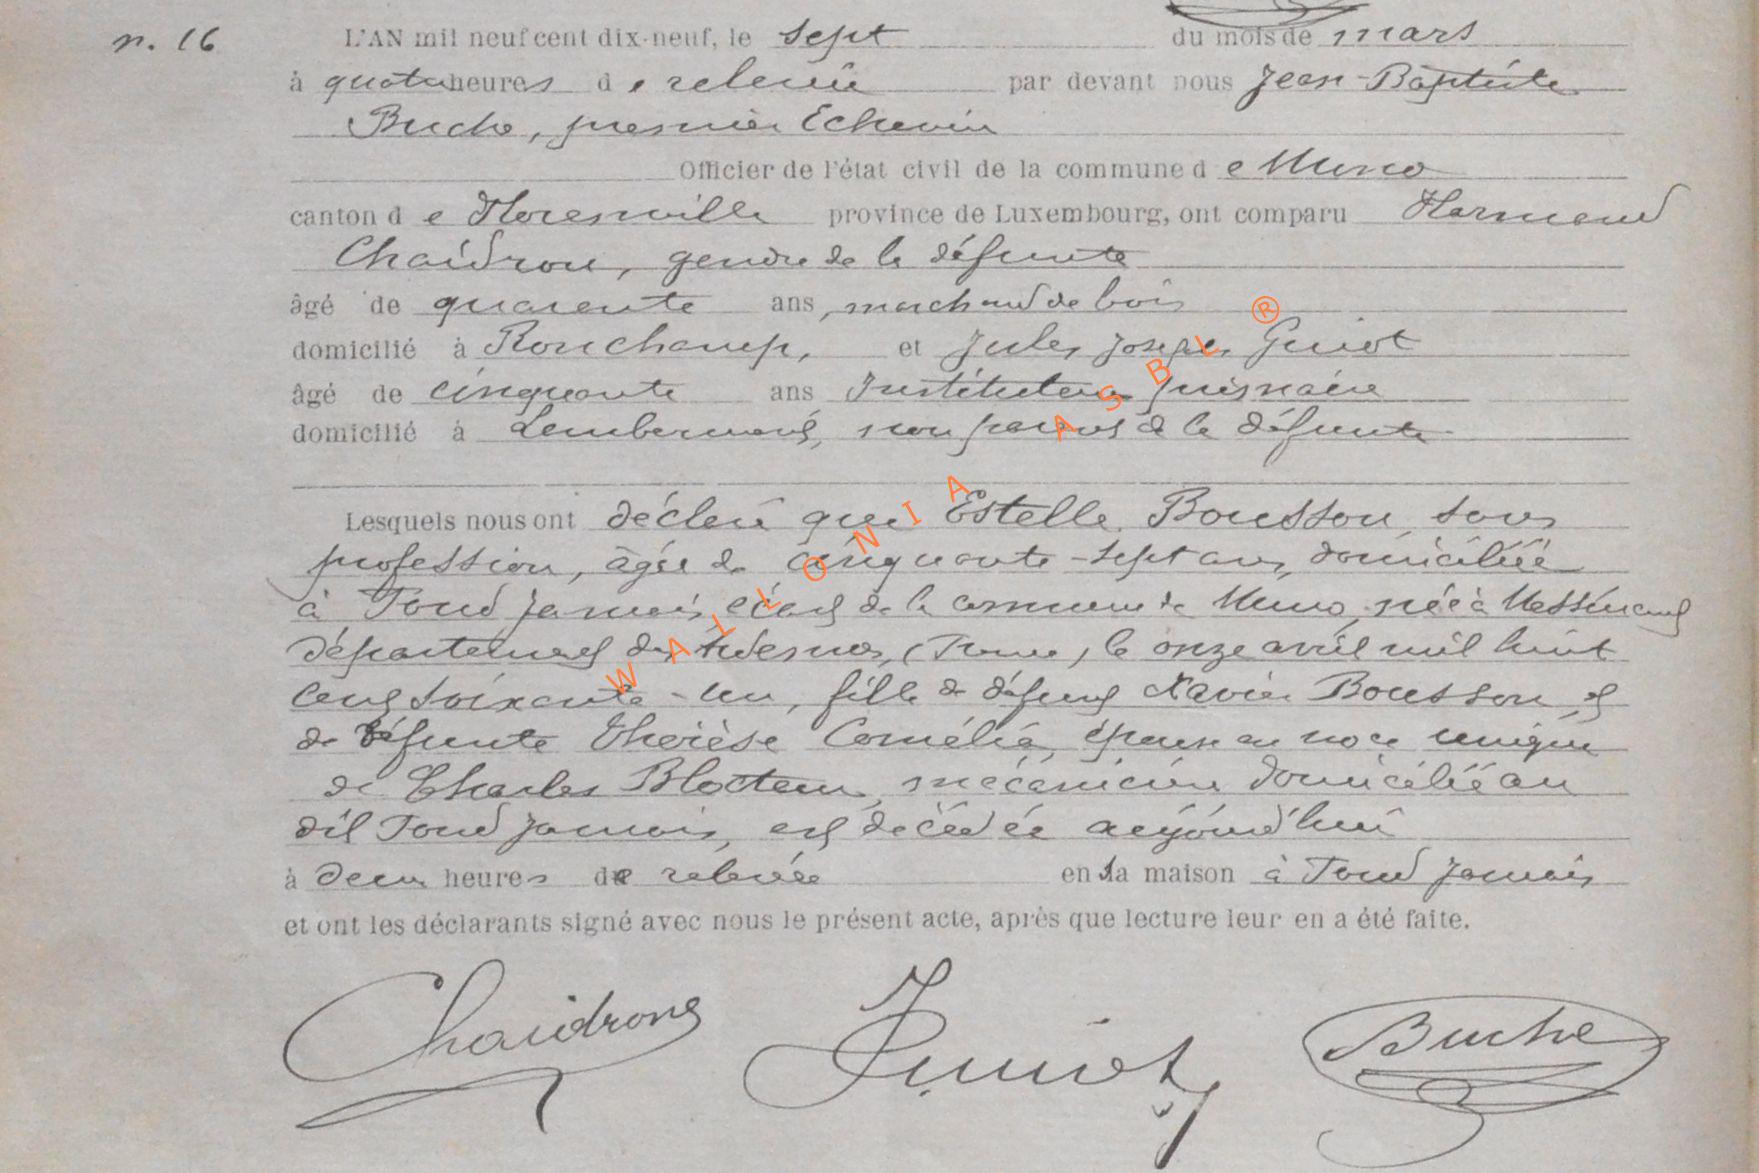 n. 16
L'AN mil neuf cent dix-neuf, le sept du mois de mars
à quatre heures de relevée par devant nous Jean-Baptiste
Buche, premier Echevin
Officier de l'état civil de la commune de Muno
canton de Florenville province de Luxembourg, ont comparu
Chaidron, gendre de la défunte
âgé de quarante ans, marchand de bois
domicilié à et Jules Joseph Guiot
âgé de cinquante ans Instituteur
domicilié à Lambermont, non parent de la défunte
Lesquels nous ont déclaré que Estelle Bousson sans
profession, âgée de cinquante-sept ans, domiciliée
à Fond Jamais écart de la commune de Muno, née à Messincourt
département des Ardennes, (France) le onze avril mil huit
cent soixante-un, fille de défunt Xavier Bousson et
de défunte Thérèse Cornélie, épouse en noce unique
de Charles Blocteur, mécanicien domicilié au
dit Fond Jamais, est décédée aujourd'hui
à deux heures de relevée en la maison à Fond Jamais
et ont les déclarants signé avec nous le présent acte, après que lecture leur en a été faite.
Chaidron Guiot Buche
WALLONIA ASBL ®